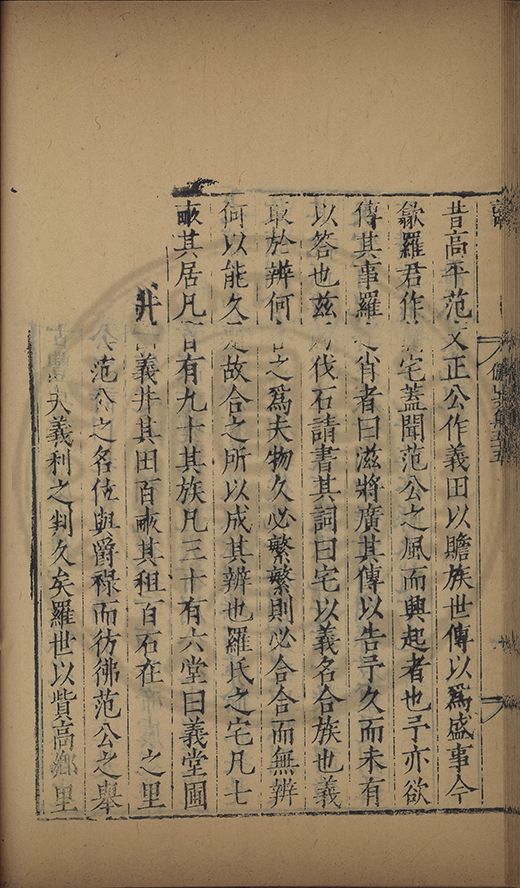 昔高平范文正公作義田以贍族世傳以爲盛事今
歙羅君作宅蓋聞范公之風而興起者也予亦欲
傳其事羅肖者曰滋將廣其傳以告予久而未有
以答也兹伐石請書其詞曰宅以義名合族也義
取於辨何合之爲夫物久必繁繁則必合合而無辨
何以能久是故合之所以成其辨也羅氏之宅凡七
畝其居凡百有九十其族凡三十有六堂曰義堂圃
井曰義井其田百畝其租百石在 之里
范公之名位與爵祿而彷彿范公之舉
夫義利之判久矣羅世以貲高鄉里